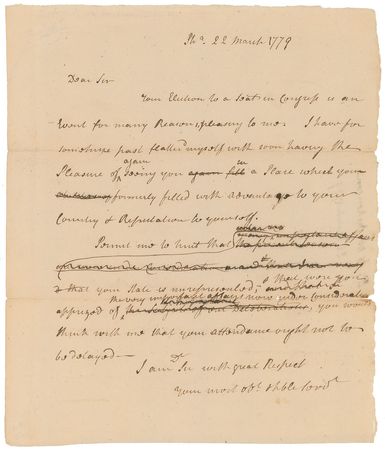 Pha. 22 March 1779
Dear Sir
Your Election to a Seat in Congress is an
Event for many Reasons pleasing to me. I have for
sometime past flatter'd myself with soon having the
Pleasure of again seeing you again fill in a Place which you
formerly filled with advantage to your
Country & Reputation to yourself.
Permit me to hint that
many important affairs
the present
& that your State is unrepresented, & that were you
apprized of the very important affairs now under consideration
our Deliberations, you would
think with me that your attendance ought not to
be delayed—
I am Dr Sir with great Respect
Your most obt. & hble Servt.